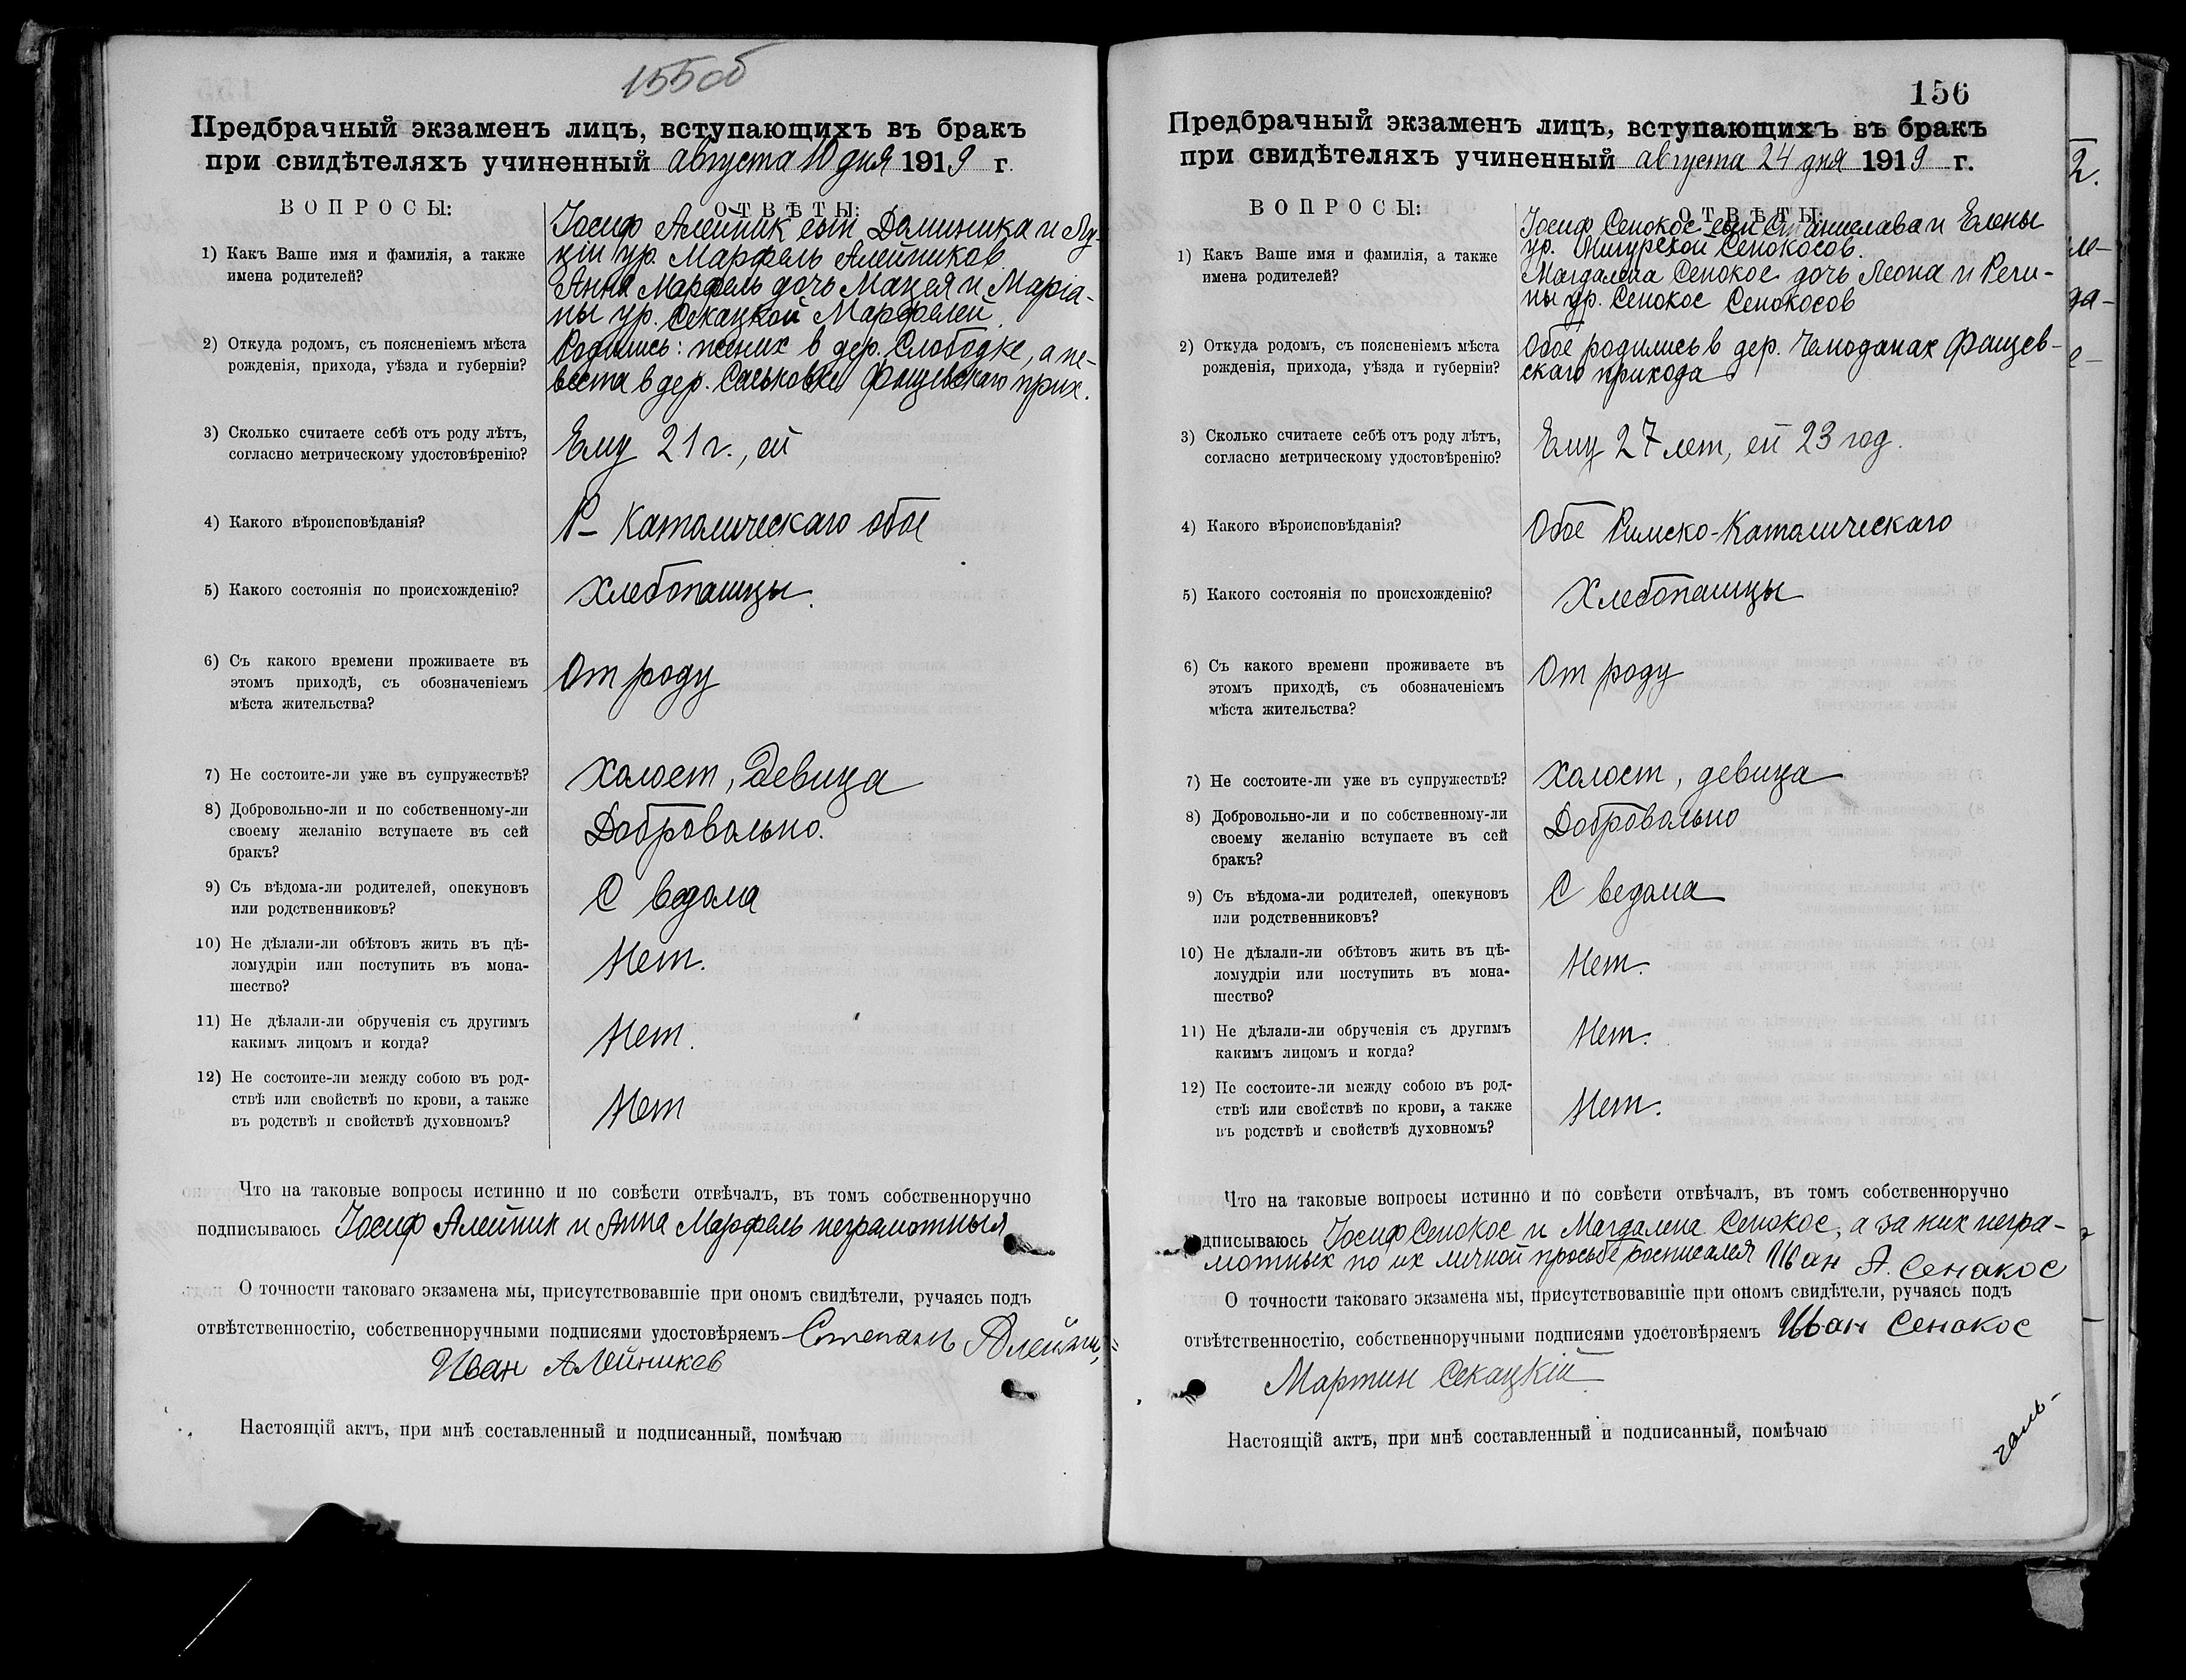 155об
Предбрачный экзаменъ лицъ, вступающихъ въ бракъ
при свидѣтеляхъ учиненный августа 10 дня 1919 г.
ВОПРОСЫ:
ОТВѢТЫ:
1) Какъ Ваше имя и фамилія, а также
имена родителей?
Іосиф Алейник сын Доминика и Лу-
ціи ур. Марфель Алейников
Анна Марфель дочь Мацея и Маріа-
ны ур. Секацкой Марфелей
2) Откуда родомъ, съ поясненіемъ мѣста
рожденія, прихода, уѣзда и губерніи?
Родились: жених в дер. Слободке, а не-
веста в дер. Саськовке Фащевскаго прих.
3) Сколько считаете себѣ отъ роду лѣтъ,
согласно метрическому удостовѣренію?
Ему 21 г., ей
4) Какого вѣроисповѣданія?
Р-Католическаго обое
5) Какого состоянія по происхожденію?
Хлебопашцы.
6) Съ какого времени проживаете въ
этомъ приходѣ, съ обозначеніемъ
мѣста жительства?
От роду
7) Не состоите-ли уже въ супружествѣ?
Холост, Девица
8) Добровольно-ли и по собственному-ли
своему желанію вступаете въ сей
бракъ?
Добровольно.
9) Съ вѣдома-ли родителей, опекуновъ
или родственниковъ?
С ведома
10) Не дѣлали-ли обѣтовъ жить въ цѣ-
ломудріи или поступить въ мона-
шество?
Нет.
11) Не дѣлали-ли обрученія съ другимъ
какимъ лицомъ и когда?
Нет.
12) Не состоите-ли между собою въ род-
ствѣ или свойствѣ по крови, а также
въ родствѣ и свойствѣ духовномъ?
Нет
Что на таковые вопросы истинно и по совѣсти отвѣчалъ, въ томъ собственноручно
подписываюсь Іосиф Алейник и Анна Марфель неграмотныя
О точности таковаго экзамена мы, присутствовавшіе при ономъ свидѣтели, ручаясь подъ
отвѣтственностію, собственноручными подписями удостовѣряемъ Степанъ
Иван Алейников
Настоящій актъ, при мнѣ составленный и подписанный, помѣчаю
156
Предбрачный экзаменъ лицъ, вступающихъ въ бракъ
при свидѣтеляхъ учиненный августа 24 дня 1919 г.
ВОПРОСЫ:
ОТВѢТЫ:
1) Какъ Ваше имя и фамилія, а также
имена родителей?
Іосиф Сенокос сын Станислава и Елены
ур. Сенокосов.
Магдалена Сенокос дочь Леона и Реги-
ны ур. Сенокос Сенокосов
2) Откуда родомъ, съ поясненіемъ мѣста
рожденія, прихода, уѣзда и губерніи?
Обое родились в дер. Чемоданах Фащев-
скаго прихода
3) Сколько считаете себѣ отъ роду лѣтъ,
согласно метрическому удостовѣренію?
Ему 27 лет, ей 23 год.
4) Какого вѣроисповѣданія?
Обое Римско-Католическаго
5) Какого состоянія по происхожденію?
Хлебопашцы
6) Съ какого времени проживаете въ
этомъ приходѣ, съ обозначеніемъ
мѣста жительства?
От роду
7) Не состоите-ли уже въ супружествѣ?
Холост, девица
8) Добровольно-ли и по собственному-ли
своему желанію вступаете въ сей
бракъ?
Добровольно
9) Съ вѣдома-ли родителей, опекуновъ
или родственниковъ?
С ведома
10) Не дѣлали-ли обѣтовъ жить въ цѣ-
ломудріи или поступить въ мона-
шество?
Нет.
11) Не дѣлали-ли обрученія съ другимъ
какимъ лицомъ и когда?
Нет.
12) Не состоите-ли между собою въ род-
ствѣ или свойствѣ по крови, а также
въ родствѣ и свойствѣ духовномъ?
Нет.
Что на таковые вопросы истинно и по совѣсти отвѣчалъ, въ томъ собственноручно
подписываюсь Іосиф Сенокос и Магдалена Сенокос, а за них негра-
мотных по их личной просьбе росписался Иван А. Сенокос
О точности таковаго экзамена мы, присутствовавшіе при ономъ свидѣтели, ручаясь подъ
отвѣтственностію, собственноручными подписями удостовѣряемъ Иван Сенокос
Мартин Секацкій
Настоящій актъ, при мнѣ составленный и подписанный, помѣчаю